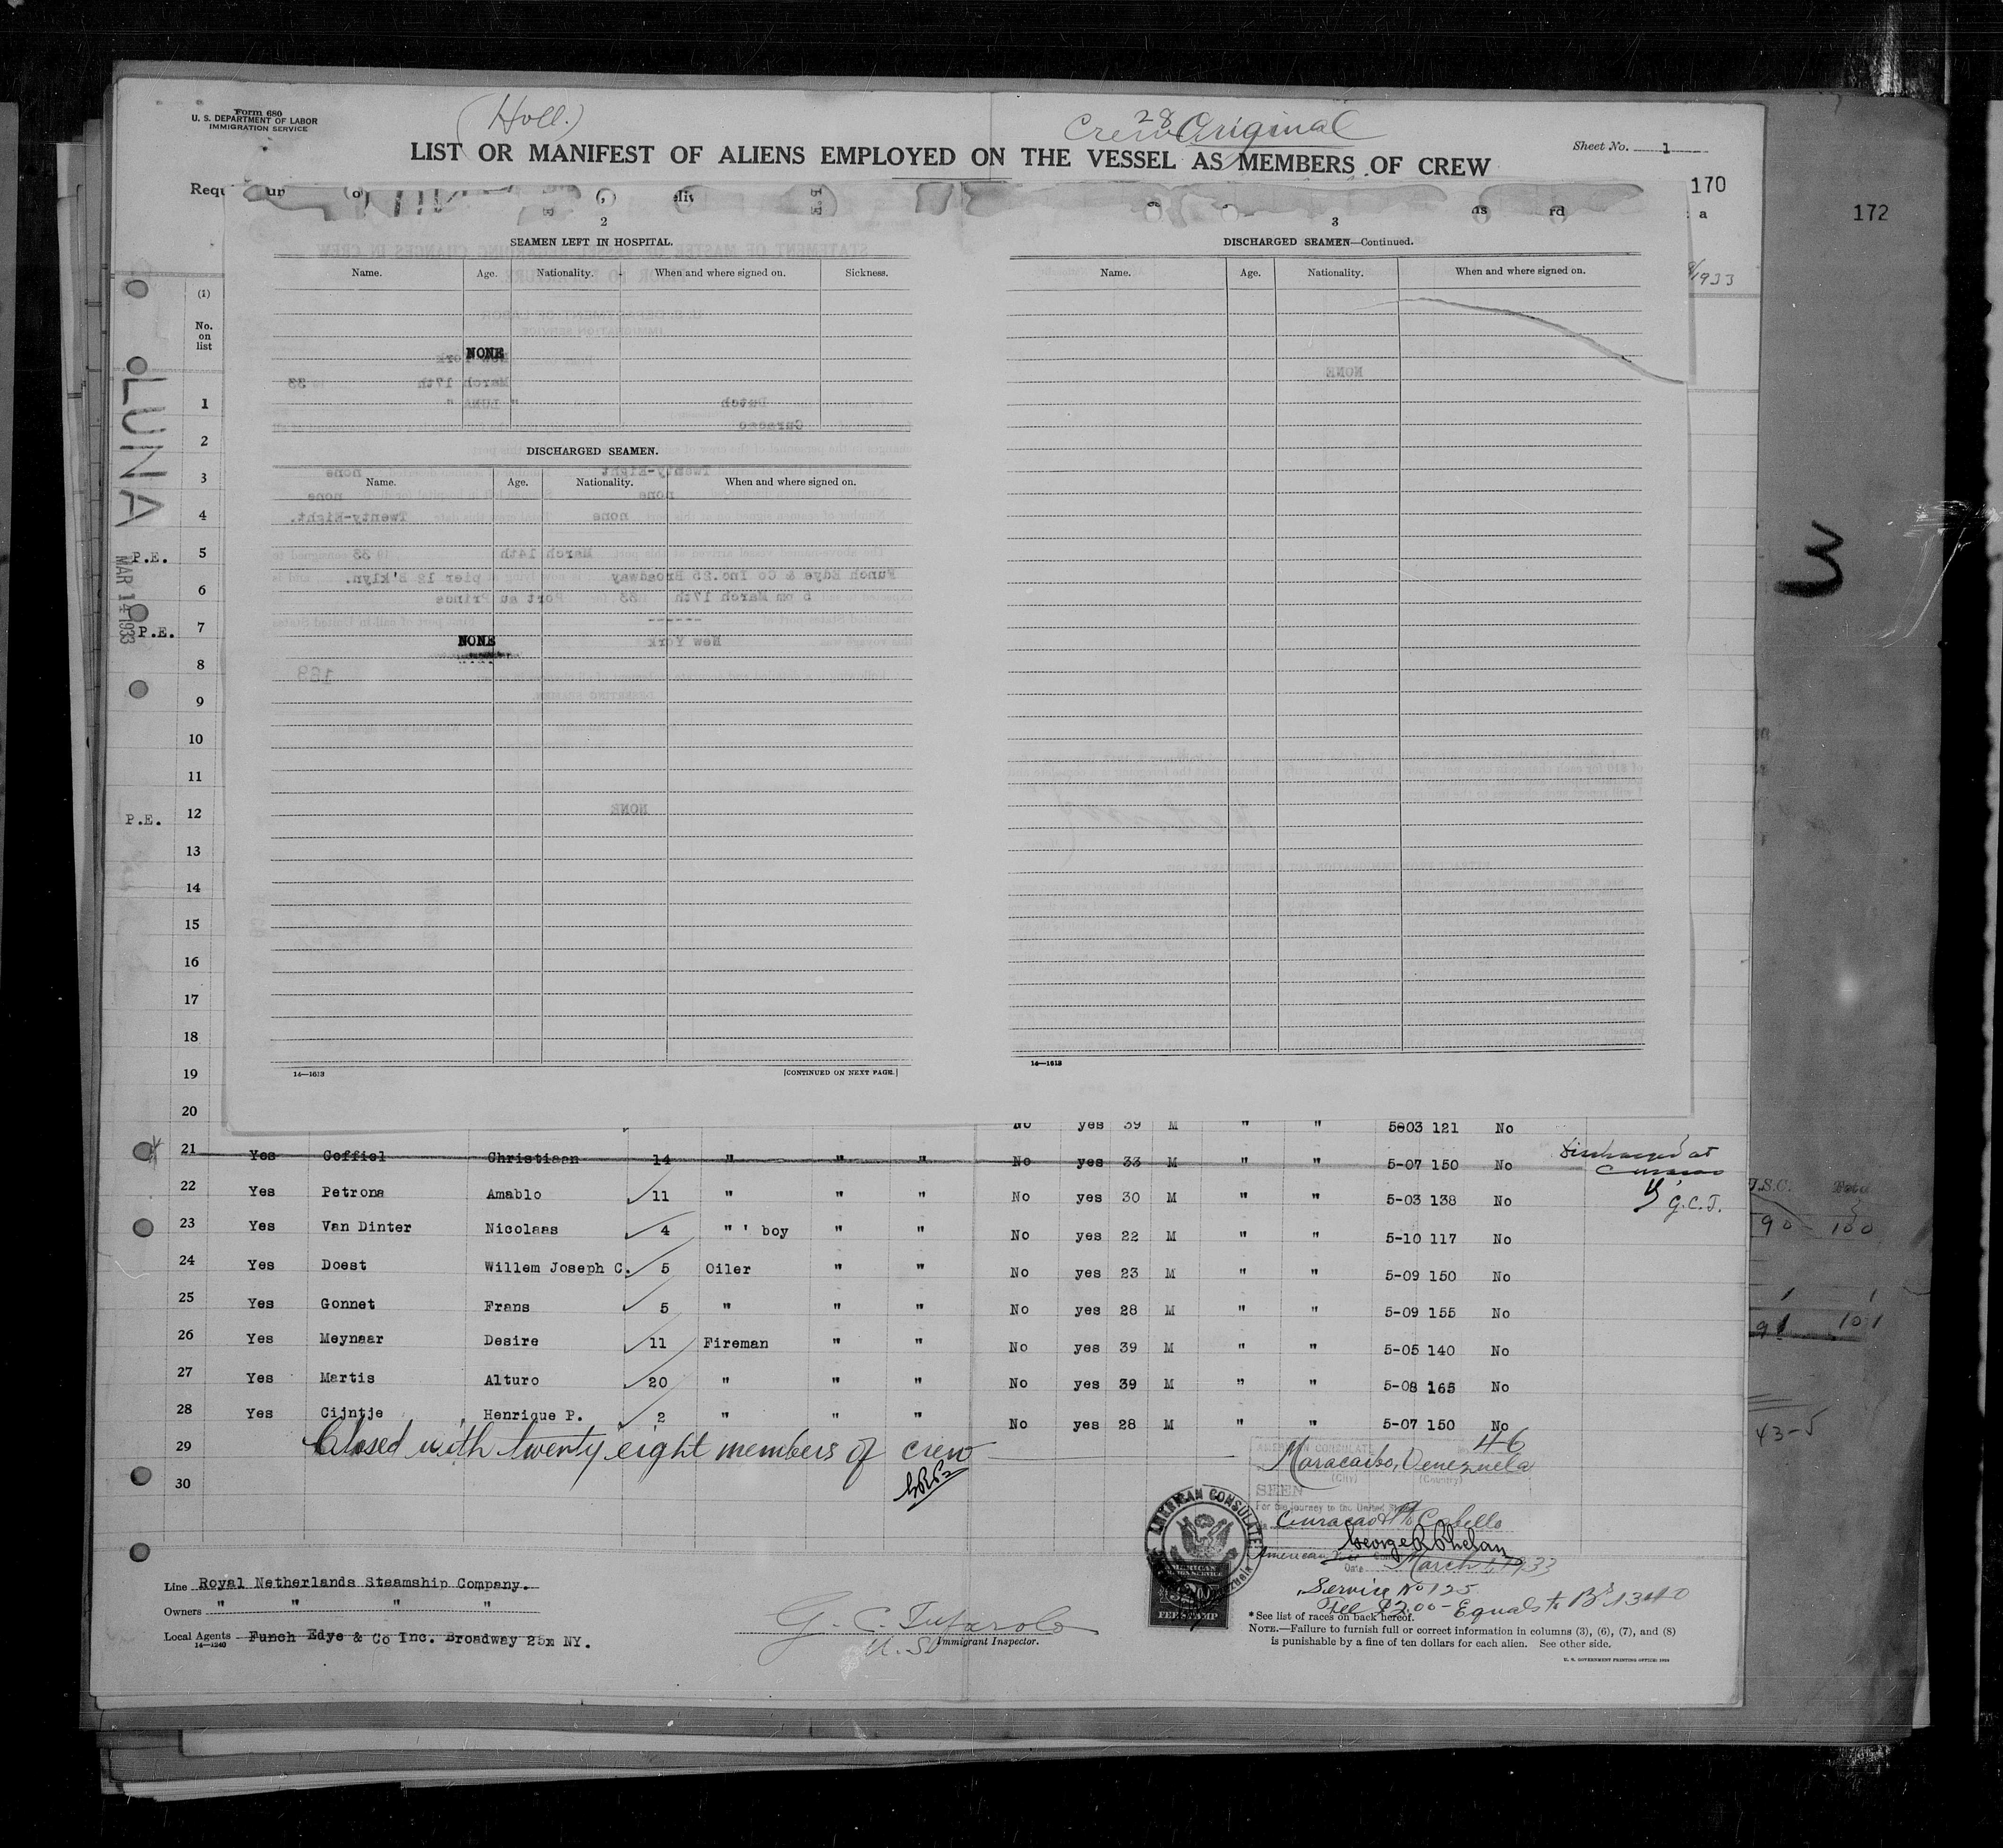 Form 680
U. S. DEPARTMENT OF LABOR
IMMIGRATION SERVICE
(Holl.)
28
Crew Original
Sheet No. 1
LIST OR MANIFEST OF ALIENS EMPLOYED ON THE VESSEL AS MEMBERS OF CREW
170
172
2
SEAMEN LEFT IN HOSPITAL.
Name. Age. Nationality. When and where signed on. Sickness.
NONE
DISCHARGED SEAMEN.
Name. Age. Nationality. When and where signed on.
NONE
14—1613 [CONTINUED ON NEXT PAGE.]
3
DISCHARGED SEAMEN—Continued.
Name. Age. Nationality. When and where signed on.
14—1613
1933
3
LUNA
MAR 14 1933
(1)
No.
on
list
1
2
3
4
P.E. 5
6
P.E. 7
8
9
10
11
P.E. 12
13
14
15
16
17
18
19
20 No yes 39 M " " 5-03 121 No
21 Yes Goffiel Christiaan 14 " " " No yes 33 M " " 5-07 150 No Discharged at Curacao
22 Yes Petrona Amablo 11 " " " No yes 30 M " " 5-03 138 No G.C.T.
23 Yes Van Dinter Nicolaas 4 " ' boy " " No yes 22 M " " 5-10 117 No
24 Yes Doest Willem Joseph C. 5 Oiler " " No yes 23 M " " 5-09 150 No
25 Yes Gonnet Frans 5 " " " No yes 28 M " " 5-09 155 No
26 Yes Meynaar Desire 11 Fireman " " No yes 39 M " " 5-05 140 No
27 Yes Martis Alturo 20 " " " No yes 39 M " " 5-08 165 No
28 Yes Cijntje Henrique P. 2 " " " No yes 28 M " " 5-07 150 No
29 Closed with twenty eight members of crew
30
U.S.C. Total
90 100
1 1
91 101
43-5
AMERICAN CONSULATE No. 46
Maracaibo, Venezuela
(City) (Country)
SEEN
For the journey to the United States
Curacao & Pto Cabello
George R Phelan
American Vice Consul
Date March 1, 1933
Service No 125
Fee $2.00 - Equals to Bs 13.40
AMERICAN CONSULATE
FEE STAMP
Line Royal Netherlands Steamship Company.
Owners " " " "
Local Agents Funch Edye & Co Inc. Broadway 25x NY.
14—1240
G. C. Tufarolo
Immigrant Inspector.
*See list of races on back hereof.
NOTE.—Failure to furnish full or correct information in columns (3), (6), (7), and (8)
is punishable by a fine of ten dollars for each alien. See other side.
U. S. GOVERNMENT PRINTING OFFICE: 1930